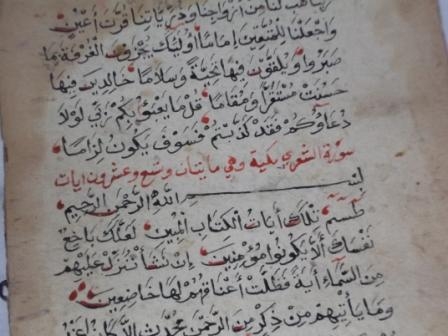 هب لنا من أزواجنا وذرياتنا قرت أعين
واجعلنا للمتقين إماما أوليك يجزون الغرفة بما
صبروا ويلقون فيها تحية وسلاما خالدين فيها
حسنت مستقرا ومقاما قل ما يعبؤا بكم ربي لولا
دعاؤكم فقد كذبتم فسوف يكون لزاما
سورة الشعرى مكية وهي مايتان وسبع وعشرون ايات
بسم الله الرحمن الرحيم
طسم تلك أيات الكتاب المبين لعلك باخع
نفسك ألا يكونوا مومنين إن نشأ ننزل عليهم
من السماء أية فظلت أعناقهم لها خاضعين
وما يأتيهم من ذكر من الرحمن محدث إلا كانوا عنه